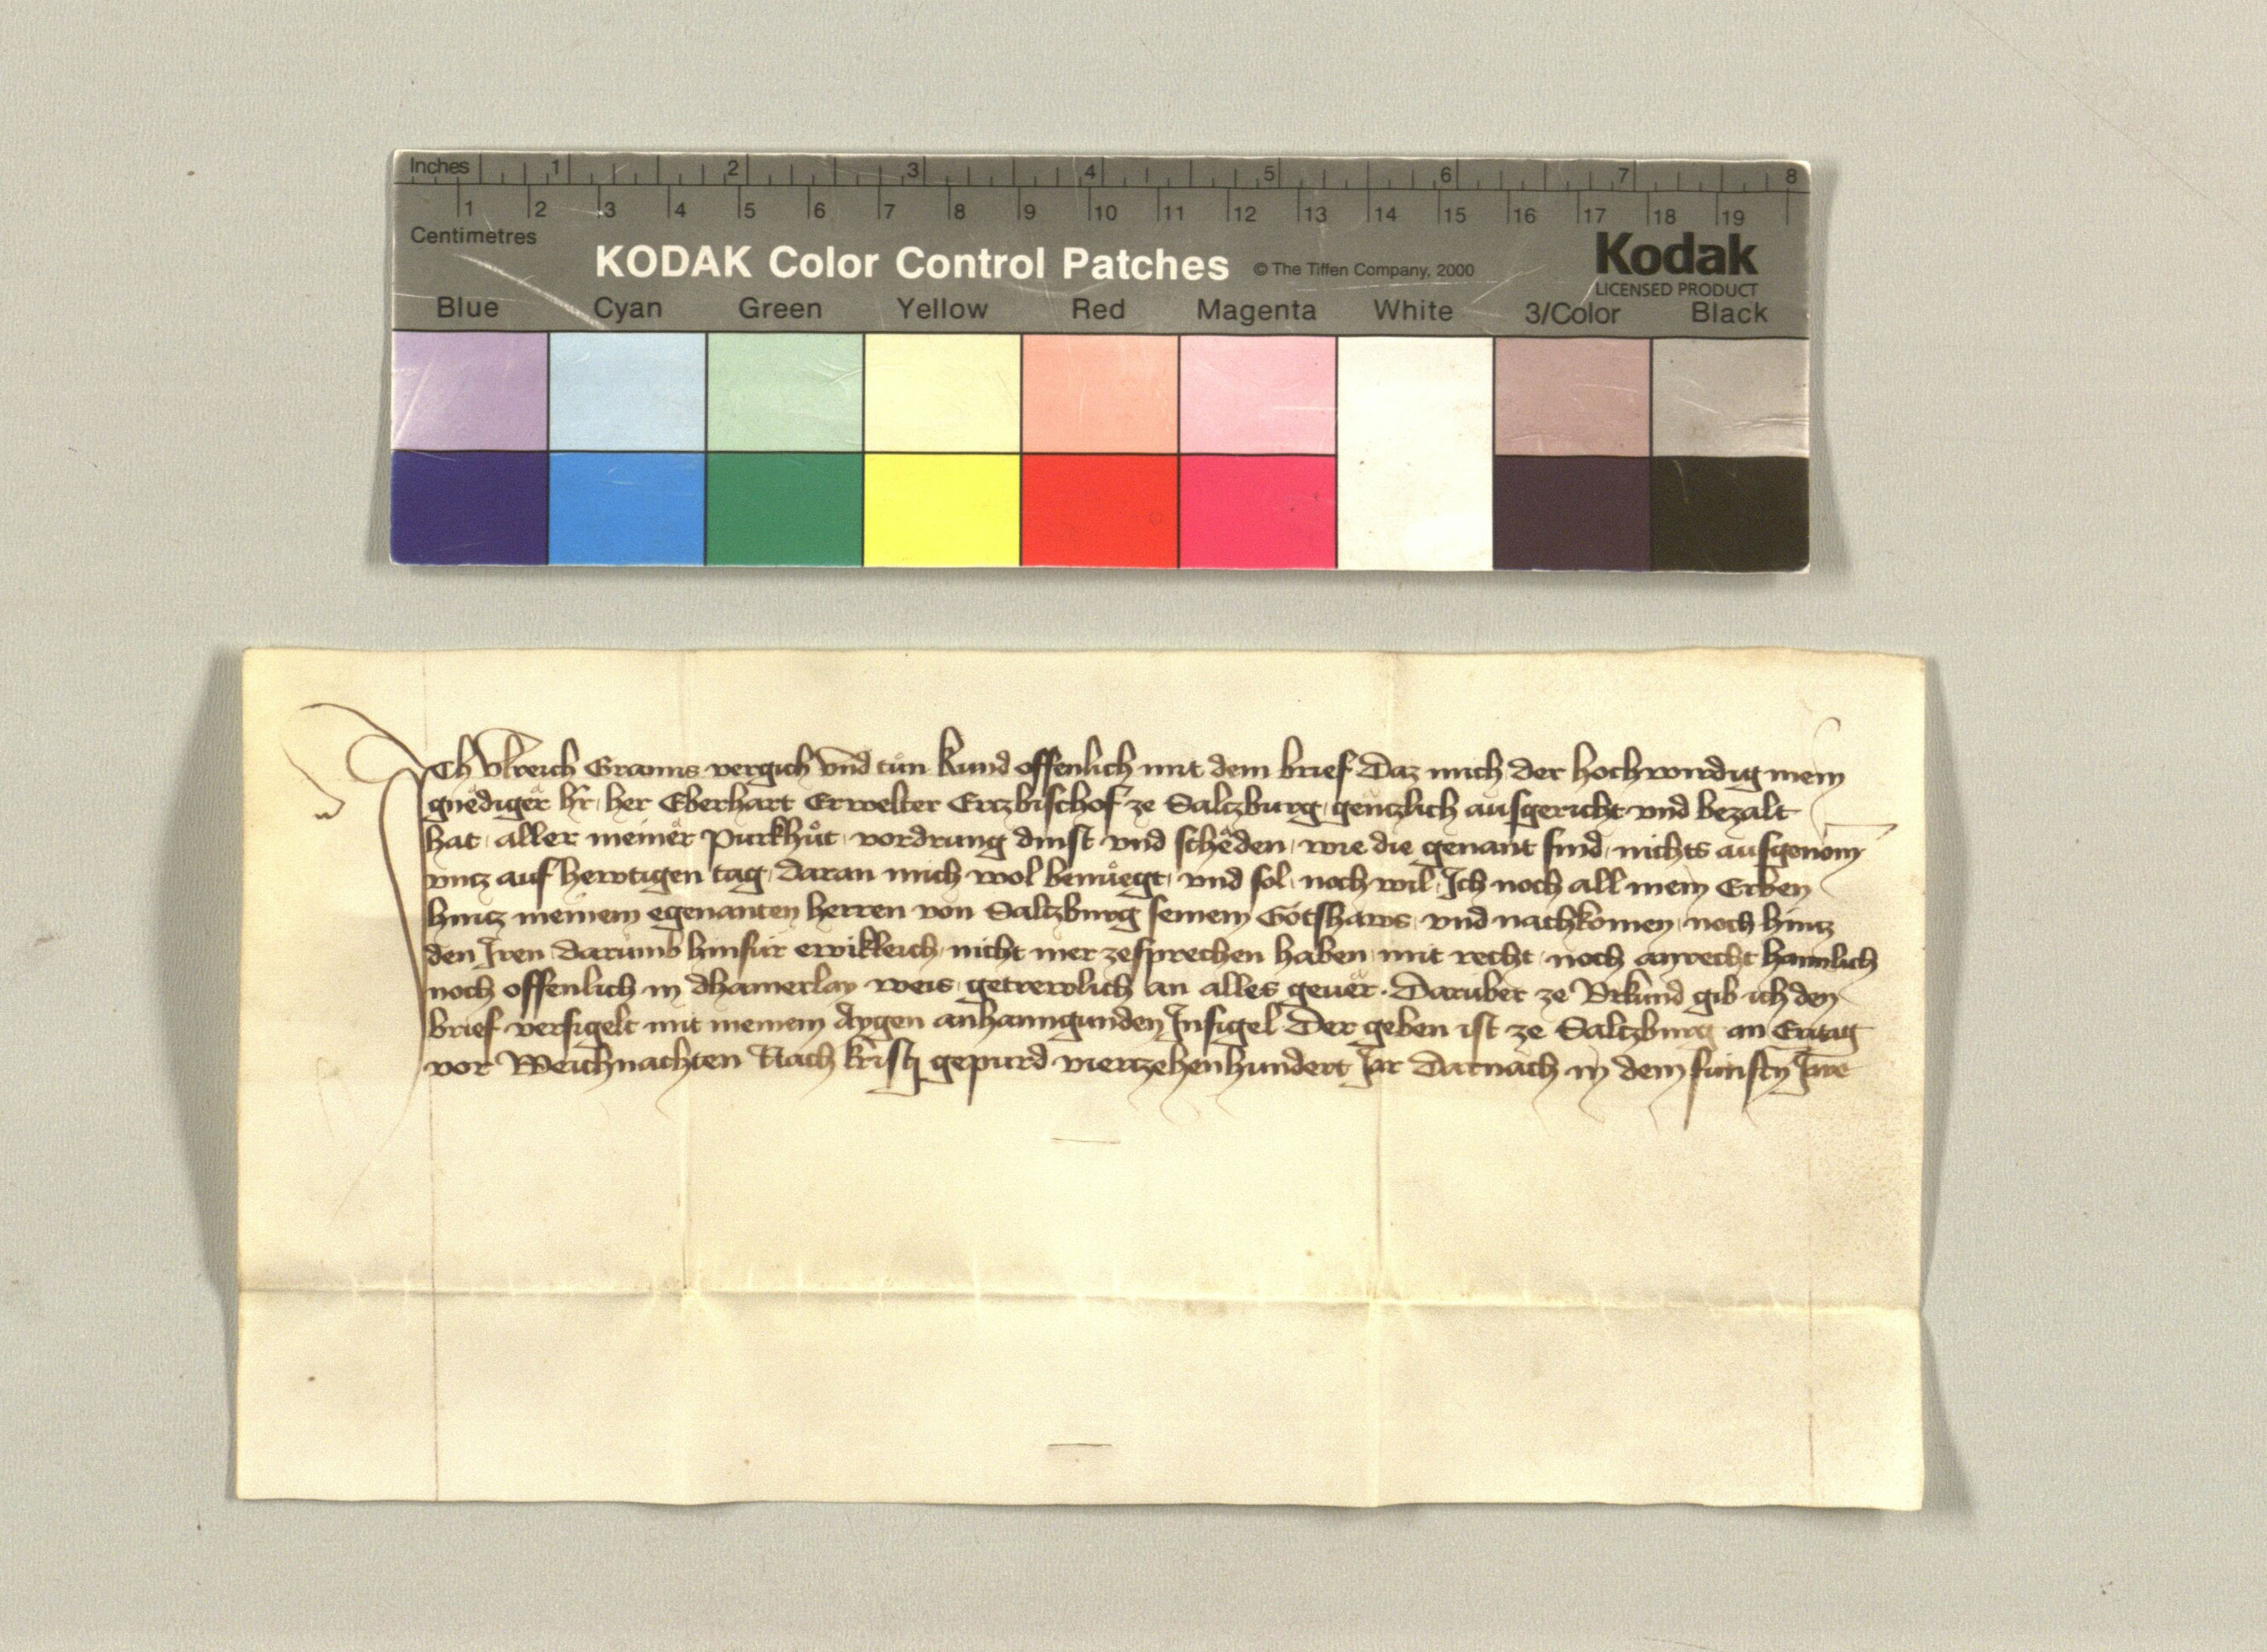 Inches 1 2 3 4 5 6 7 8
1 2 3 4 5 6 7 8 9 10 11 12 13 14 15 16 17 18 19
Centimetres
KODAK Color Control Patches © The Tiffen Company, 2000 Kodak
LICENSED PRODUCT
Blue Cyan Green Yellow Red Magenta White 3/Color Black
ICh Vlreich Grans vergich vnd tůn kund offenlich mit dem brief Daz mich der hochwirdig mein
gnediger hr̄ her Eberhart Erwelter Ertzbischof ze Saltzburg gentzlich ausgericht vnd bezalt
hat aller meiner purkhůt vordrung dinst vnd scheden wie die genant sind nichts ausgenom̄
vntz auf hewtigen tag daran mich wol benůegt vnd sol noch wil Ich noch all mein Erben
hintz meinem egenanten herren von Saltzburg seinem Gotshaws vnd nachkomen noch hintz
den Iren darumb hinfür ewikleich nicht mer zesprechen haben mit recht noch anrecht haimlich
noch offenlich in dhainerlay weis getrewlich an alles geuer Darüber ze Vrkund gib ich den
brief versigelt mit meinem Aygen anhanngunden Insigel Der geben ist ze Saltzburg an Eritag
vor Weichnachten Nach kristi gepurd viertzehenhundert Jar Darnach in dem fünften Jare